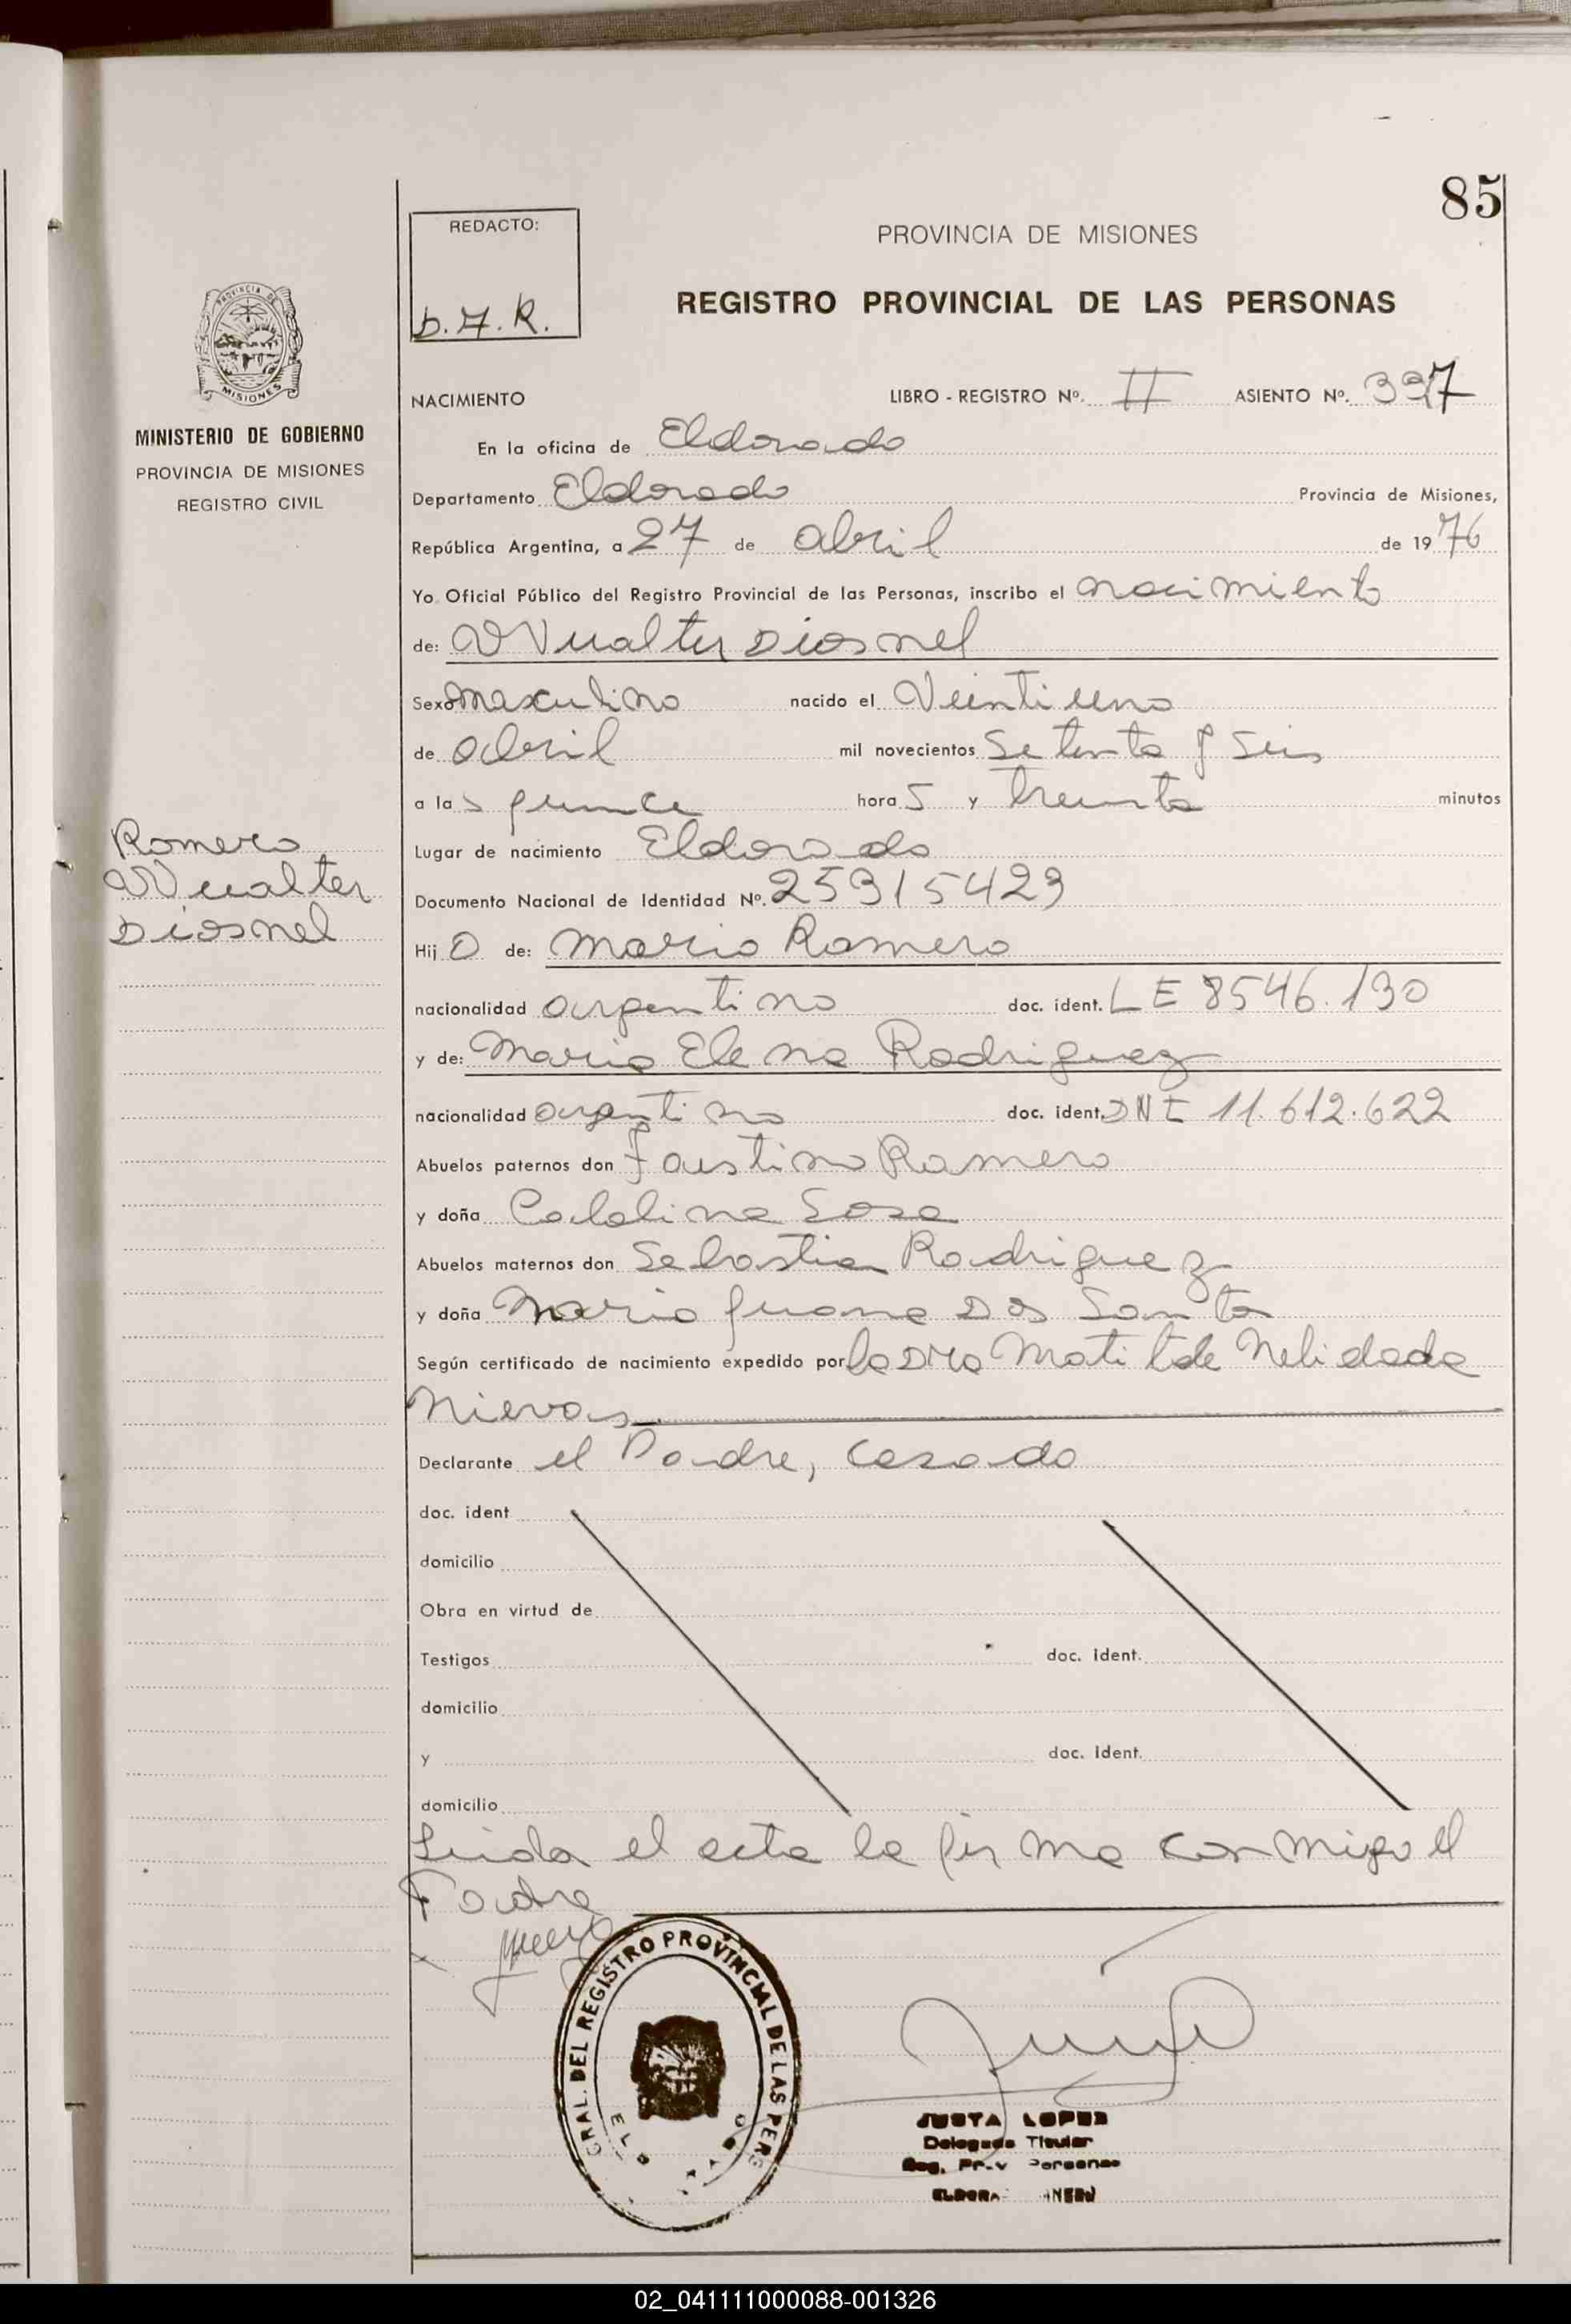 85
REDACTO:
D.7.R.
PROVINCIA DE MISIONES
REGISTRO PROVINCIAL DE LAS PERSONAS
PROVINCIA DE
MISIONES
MINISTERIO DE GOBIERNO
PROVINCIA DE MISIONES
REGISTRO CIVIL
NACIMIENTO LIBRO - REGISTRO Nº. II ASIENTO Nº. 397
En la oficina de Eldorado
Departamento Eldorado Provincia de Misiones,
República Argentina, a 27 de abril de 1976
Yo Oficial Público del Registro Provincial de las Personas, inscribo el nacimiento
de: VVualter Diosnel
Sexo masculino nacido el Veintiuno
de abril mil novecientos Setenta y Seis
a las quince horas y treinta minutos
Romero
VVualter
Diosnel
Lugar de nacimiento Eldorado
Documento Nacional de Identidad Nº. 25315423
Hijo de: Mario Romero
nacionalidad argentino doc. ident. LE 8546.130
y de: Maria Elena Rodriguez
nacionalidad argentina doc. ident. DNI 11.612.622
Abuelos paternos don Faustino Romero
y doña Catalina Sosa
Abuelos maternos don Sebastian Rodriguez
y doña Maria Juana Dos Santos
Según certificado de nacimiento expedido por la Dra Matilde Nelida de
Nievas
Declarante el Padre, casado
doc. ident
domicilio
Obra en virtud de
Testigos doc. ident.
domicilio
y doc. ident.
domicilio
Leida el acta la firma conmigo el
Padre
GRAL. DEL REGISTRO PROVINCIAL DE LAS PERS
JUSTA LOPEZ
Delegada Titular
Reg. Prov Personas